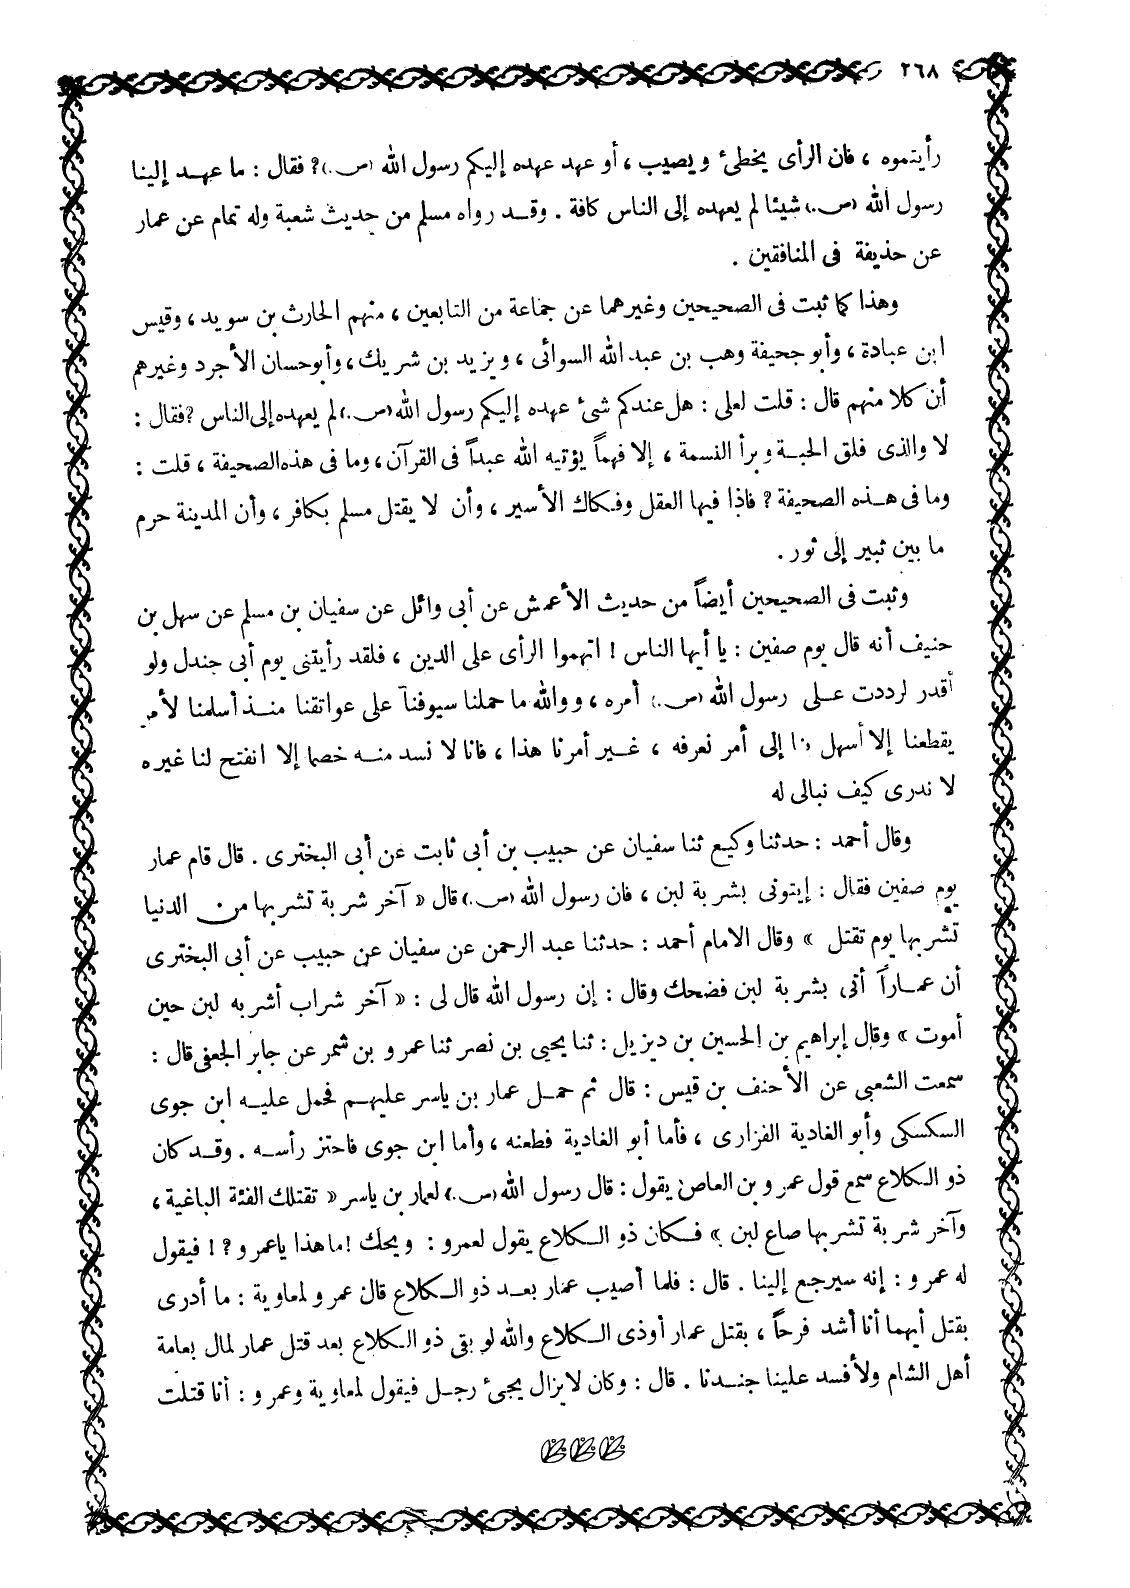 ٢٦٨
رأيتموه ، فان الرأى يخطئ ويصيب ، أو عهد عهده إليكم رسول الله (ص.)؟ فقال : ما عهـد إلينا
رسول الله (ص.) شيئا لم يعهده إلى الناس كافة . وقـد رواه مسلم من حديث شعبة وله تمام عن عمار
عن حذيفة فى المنافقين .
وهذا كما ثبت فى الصحيحين وغيرهما عن جماعة من التابعين ، منهم الحارث بن سويد ، وقيس
ابن عبادة ، وأبو جحيفة وهب بن عبد الله السوائى ، ويزيد بن شريك ، وأبو حسان الأجرد وغيرهم
أن كلا منهم قال : قلت لعلى : هل عندكم شئ عهده إليكم رسول الله (ص.) لم يعهده إلى الناس ؟ فقال :
لا والذى فلق الحبـة وبرأ النسمة ، إلا فهماً يؤتيه الله عبداً فى القرآن ، وما فى هذه الصحيفة ، قلت :
وما فى هـذه الصحيفة ؟ فاذا فيها العقل وفكاك الأسير ، وأن لا يقتل مسلم بكافر ، وأن المدينة حرم
ما بين ثبير إلى ثور .
وثبت فى الصحيحين أيضاً من حديث الأعمش عن أبى وائل عن سفيان بن مسلم عن سهل بن
حنيف أنه قال يوم صفين : يا أيها الناس ! اتهموا الرأى على الدين ، فلقد رأيتنى يوم أبى جندل ولو
أقدر لرددت عـلى رسول الله (ص.) أمره ، ووالله ما حملنا سيوفنا على عواتقنا منـذ أسلمنا لأمر
يقطعنا إلا أسهل بنا إلى أمر نعرفه ، غـير أمرنا هذا ، فانا لا نسد منـه خصما إلا انفتح لنا غيره
لا ندرى كيف نبالى له
وقال أحمد : حدثنا وكيـع ثنا سفيان عن حبيب بن أبى ثابت عن أبى البخترى . قال قام عمار
يوم صفين فقال : إيتونى بشربة لبن ، فان رسول الله (ص.) قال « آخر شربة تشربها من الدنيا
تشربها يوم تقتل » وقال الامام أحمد : حدثنا عبد الرحمن عن سفيان عن حبيب عن أبى البخترى
أن عمـاراً أتى بشربة لبن فضحك وقال : إن رسول الله قال لى : « آخر شراب أشربه لبن حين
أموت » وقال إبراهيم بن الحسين بن ديزيل : ثنا يحيى بن نصر ثنا عمرو بن شمر عن جابر الجعفى قال :
سمعت الشعبى عن الأحنف بن قيس : قال ثم حمـل عمار بن ياسر عليهـم فحمل عليـه ابن جوى
السكسكى وأبو الغادية الفزارى ، فأما أبو الغادية فطعنه ، وأما ابن جوى فاحتز رأسـه . وقـد كان
ذو الـكلاع سمع قول عمرو بن العاص يقول : قال رسول الله (ص.) لعمار بن ياسر « تقتلك الفئة الباغية ،
وآخر شربة تشربها صاع لبن » فـكان ذو الـكلاع يقول لعمرو : ويحك ! ما هذا يا عمرو ؟ ! فيقول
له عمرو : إنه سيرجع إلينا . قال : فلما أصيب عمار بعـد ذو الـكلاع قال عمرو لمعاوية : ما أدرى
بقتل أيهما أنا أشد فرحاً ، بقتل عمار أو ذى الـكلاع والله لو بقى ذو الـكلاع بعد قتل عمار لمال بعامة
أهل الشام ولأفسد علينا جنـدنا . قال : وكان لا يزال يجىء رجـل فيقول لمعاوية وعمرو : أنا قتلت